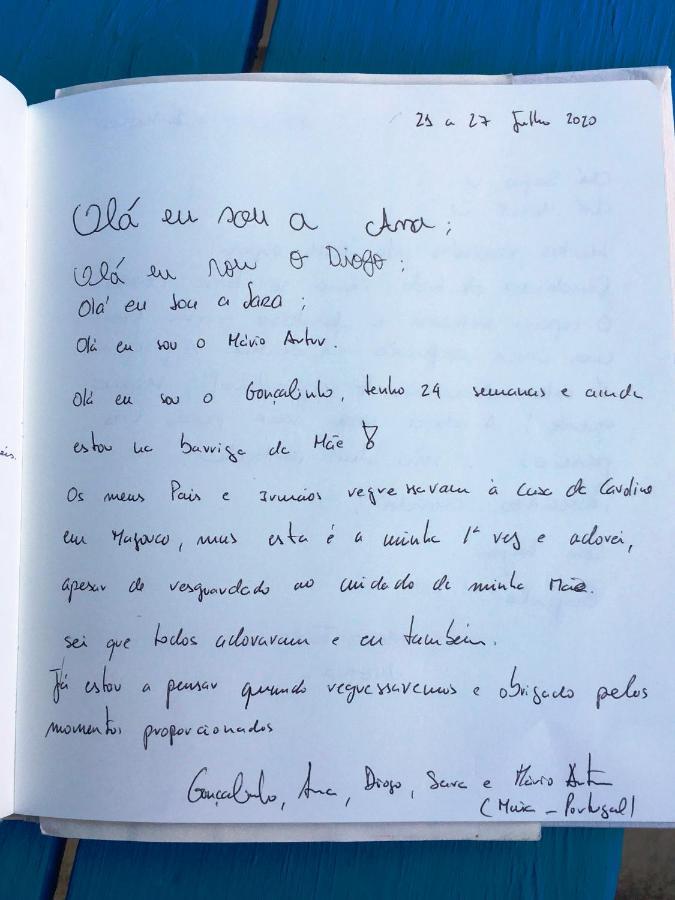 21 a 27 Julho 2020
Olá eu sou a Ana;
Olá eu sou o Diogo;
Olá eu sou a Sara;
Olá eu sou o Mário Artur.
Olá eu sou o Gonçalinho, tenho 24 semanas e ainda
estou na barriga da Mãe
Os meus Pais e Irmãos regressaram à Casa da Carolina
em Mafavco, mas esta é a minha 1ª vez e adorei,
apesar de resguardado ao cuidado da minha Mãe.
sei que todos adoraram e eu também.
Já estou a pensar quando regressaremos e obrigado pelos
momentos proporcionados
Gonçalinho, Ana, Diogo, Sara e Mário Artur
(Maia - Portugal)